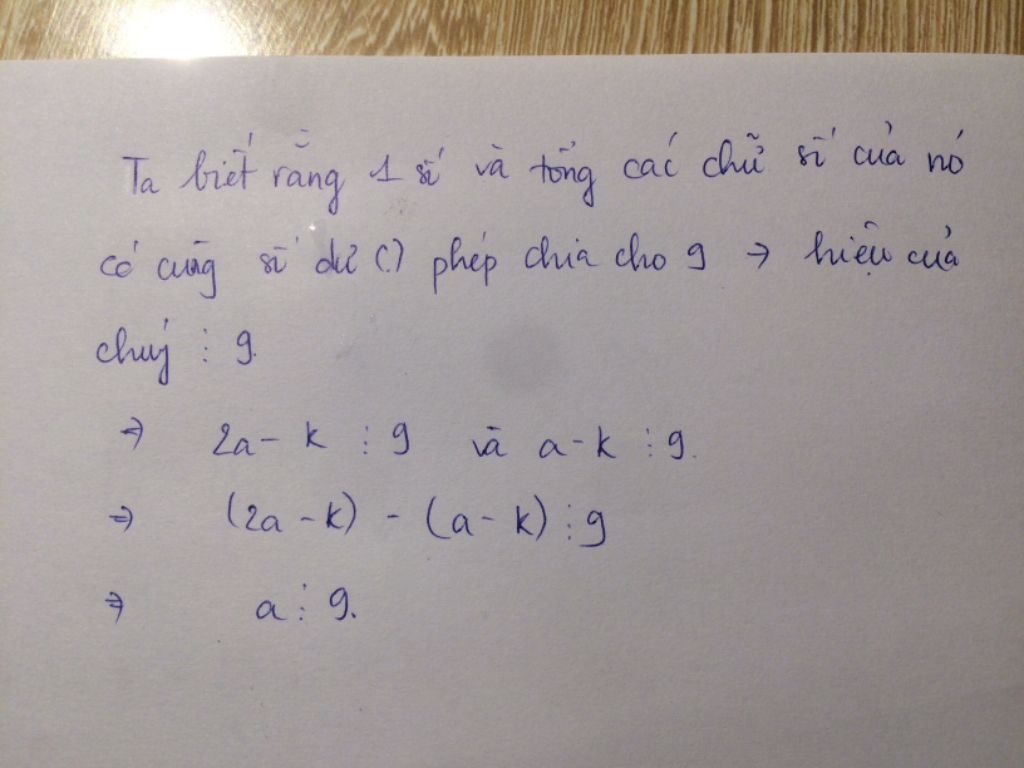 Ta biết rằng 1 số và tổng các chữ số của nó
có cùng số dư (.) phép chia cho 9 → hiệu của
chúng ⋮ 9.
⇒ 2a - k ⋮ 9 và a - k ⋮ 9.
⇒ (2a - k) - (a - k) ⋮ 9
⇒ a ⋮ 9.